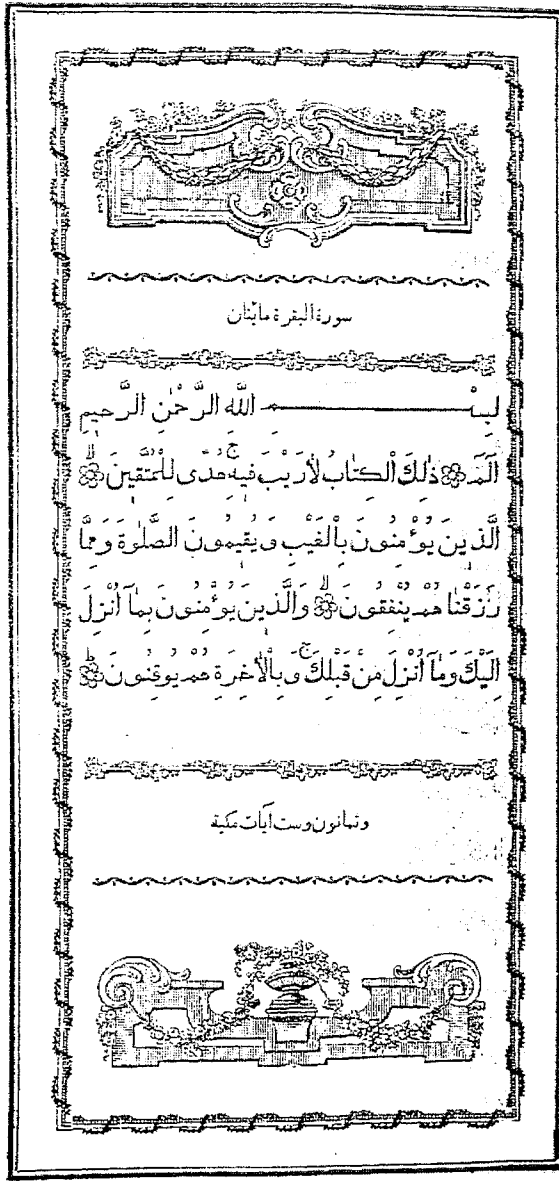 سورة البقرة مايتان
بِسْمِ اللّٰهِ الرَّحْمٰنِ الرَّحٖيمِ
الٓمٓ ۝ ذٰلِكَ الْكِتَابُ لَارَيْبَ فٖيهِ ۚ هُدًى لِلْمُتَّقٖينَ ۙ۝
اَلَّذٖينَ يُؤْمِنُونَ بِالْغَيْبِ وَيُقٖيمُونَ الصَّلٰوةَ وَمِمَّا
رَزَقْنَاهُمْ يُنْفِقُونَ ۙ۝ وَالَّذٖينَ يُؤْمِنُونَ بِمَٓا اُنْزِلَ
اِلَيْكَ وَمَٓا اُنْزِلَ مِنْ قَبْلِكَ ۚ وَبِالْاٰخِرَةِ هُمْ يُوقِنُونَ ۜ۝
وثمانون وست آيات مكية